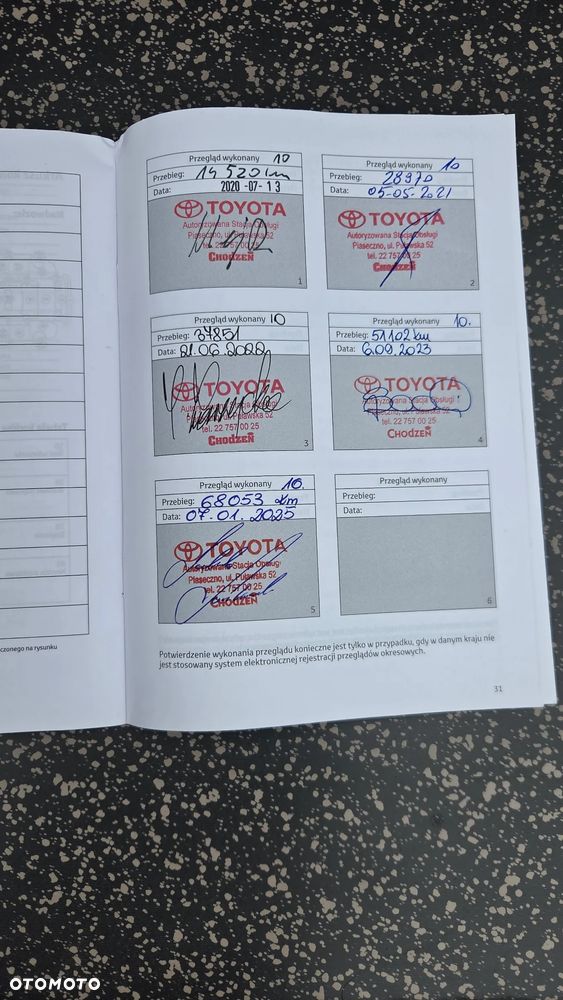 Przegląd wykonany 10
Przebieg: 14 520 km
Data: 2020-07-13
TOYOTA
Autoryzowana Stacja Obsługi
Piaseczno, ul. Puławska 52
tel. 22 757 00 25
CHODZEŃ
1
Przegląd wykonany 10
Przebieg: 28970
Data: 05-05-2021
TOYOTA
Autoryzowana Stacja Obsługi
Piaseczno, ul. Puławska 52
tel. 22 757 00 25
CHODZEŃ
2
Przegląd wykonany 10
Przebieg: 37851
Data: 21.06.2022
TOYOTA
Autoryzowana Stacja Obsługi
Piaseczno, ul. Puławska 52
tel. 22 757 00 25
CHODZEŃ
3
Przegląd wykonany 10.
Przebieg: 51102 km
Data: 6.09.2023
TOYOTA
Autoryzowana Stacja Obsługi
Piaseczno, ul. Puławska 52
tel. 22 757 00 25
CHODZEŃ
4
Przegląd wykonany 10.
Przebieg: 68053 km
Data: 07.01.2025
TOYOTA
Autoryzowana Stacja Obsługi
Piaseczno, ul. Puławska 52
tel. 22 757 00 25
CHODZEŃ
5
Przegląd wykonany
Przebieg:
Data:
6
czonego na rysunku
Potwierdzenie wykonania przeglądu konieczne jest tylko w przypadku, gdy w danym kraju nie
jest stosowany system elektronicznej rejestracji przeglądów okresowych.
31
OTOMOTO